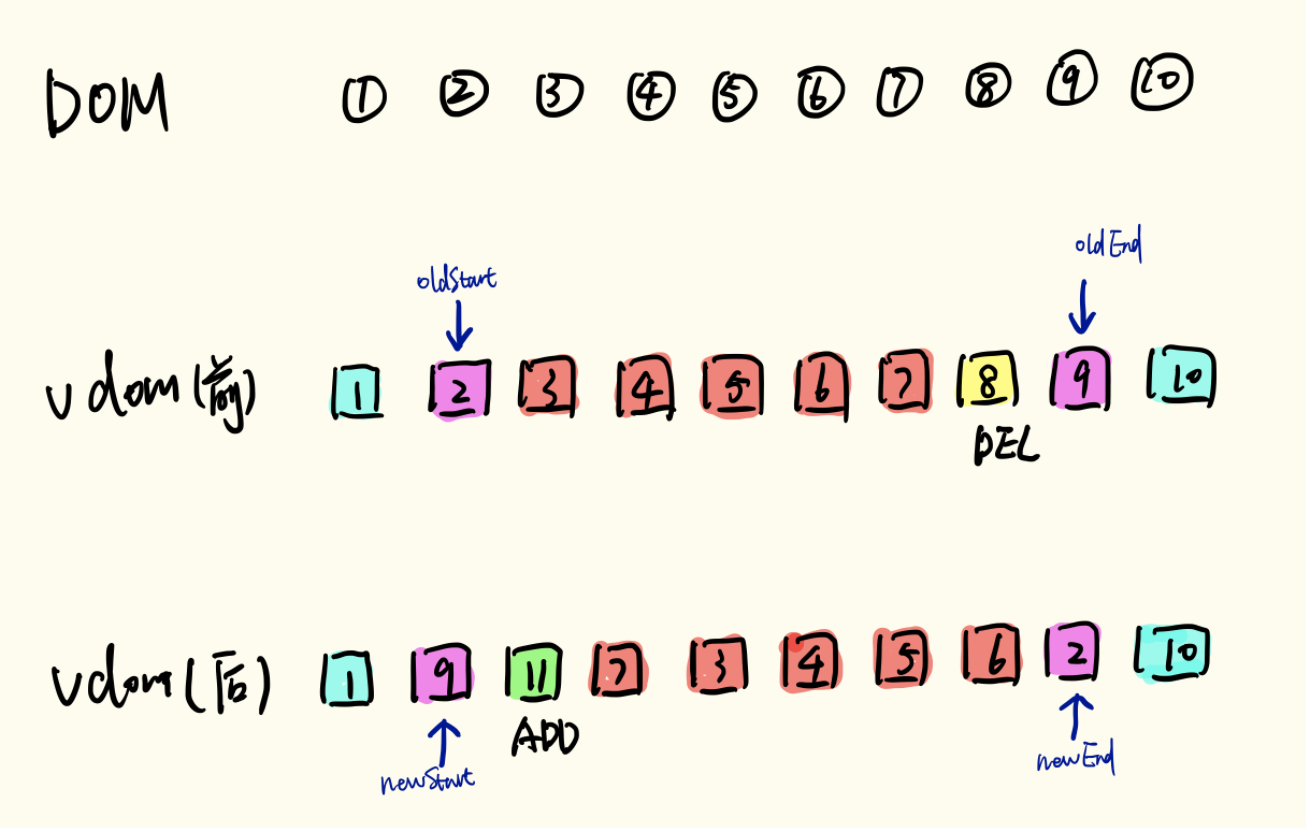 DOM ① ② ③ ④ ⑤ ⑥ ⑦ ⑧ ⑨ ⑩
oldStart oldEnd
vdom(前) 1 2 3 4 5 6 7 8 9 10
DEL
vdom(后) 1 9 11 7 3 4 5 6 2 10
ADD
newStart newEnd